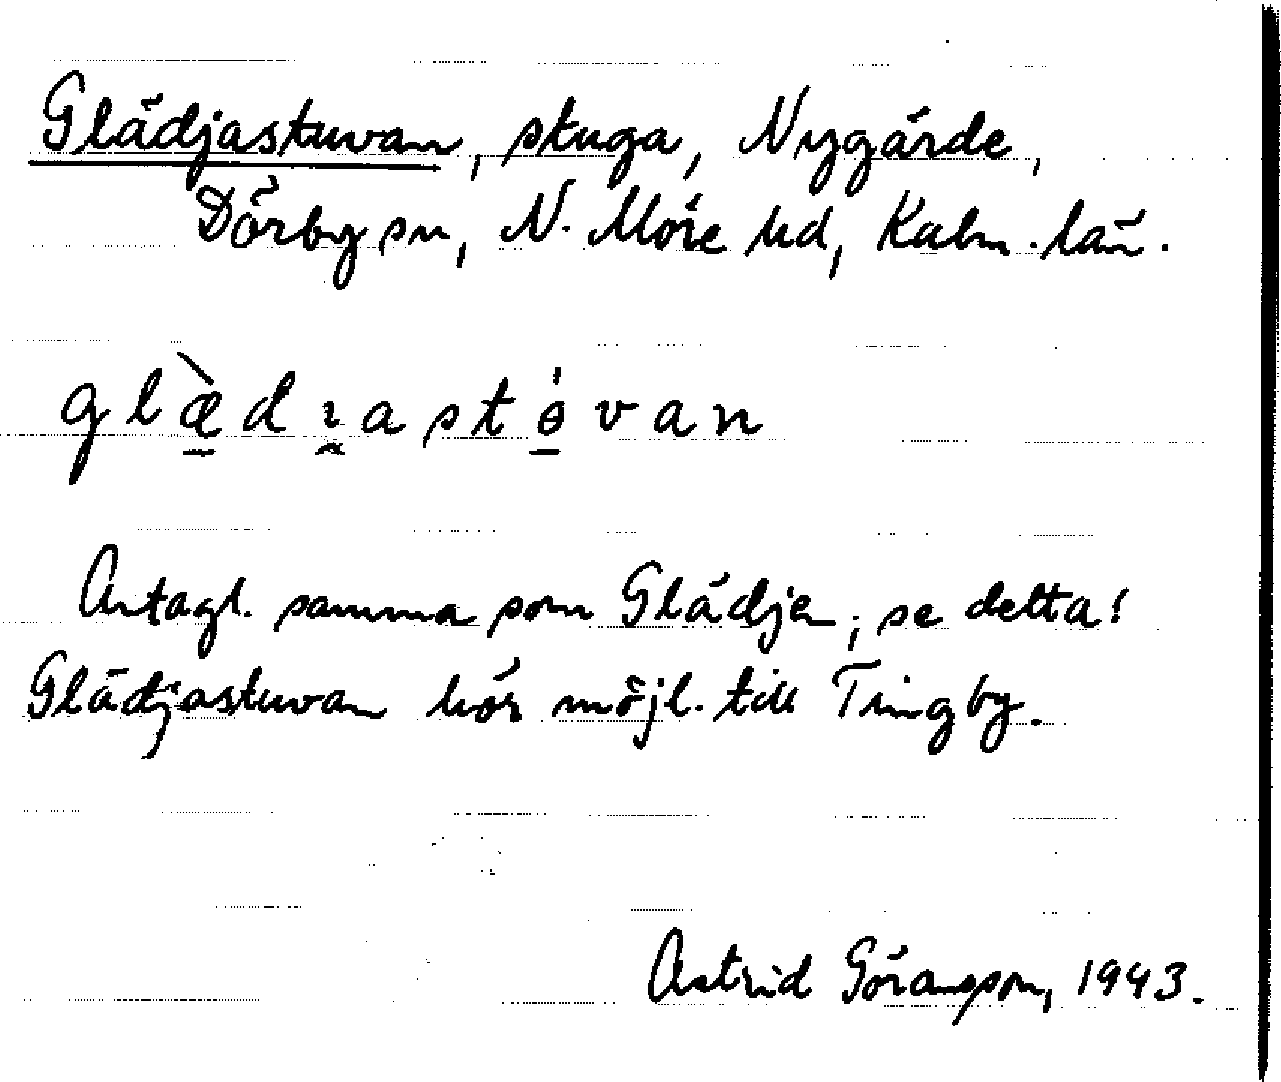 Glädjastuvan, stuga, Nygärde,
Dörby sn, N. Möre hd, Kalm. län.
glæ̠̀dı̯astɵ̠́van
Antagl. samma som Glädjen, se detta!
Glädjastuvan hör möjl. till Tingby.
Astrid Göransson, 1943.